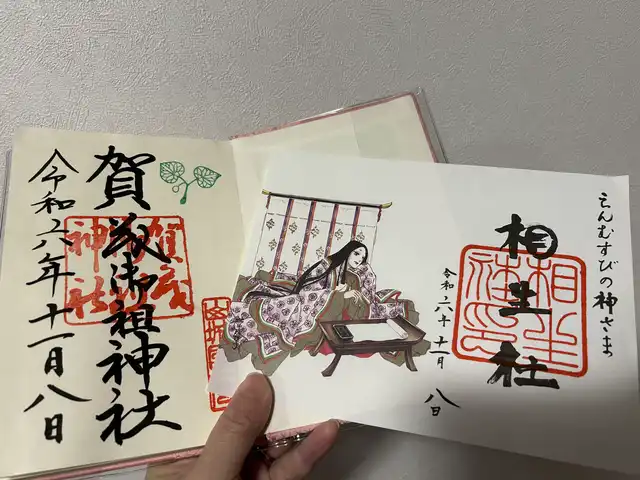 賀茂御祖神社
令和六年十一月八日
えんむすびの神さま
相生社
相生社印
令和六年十一月八日